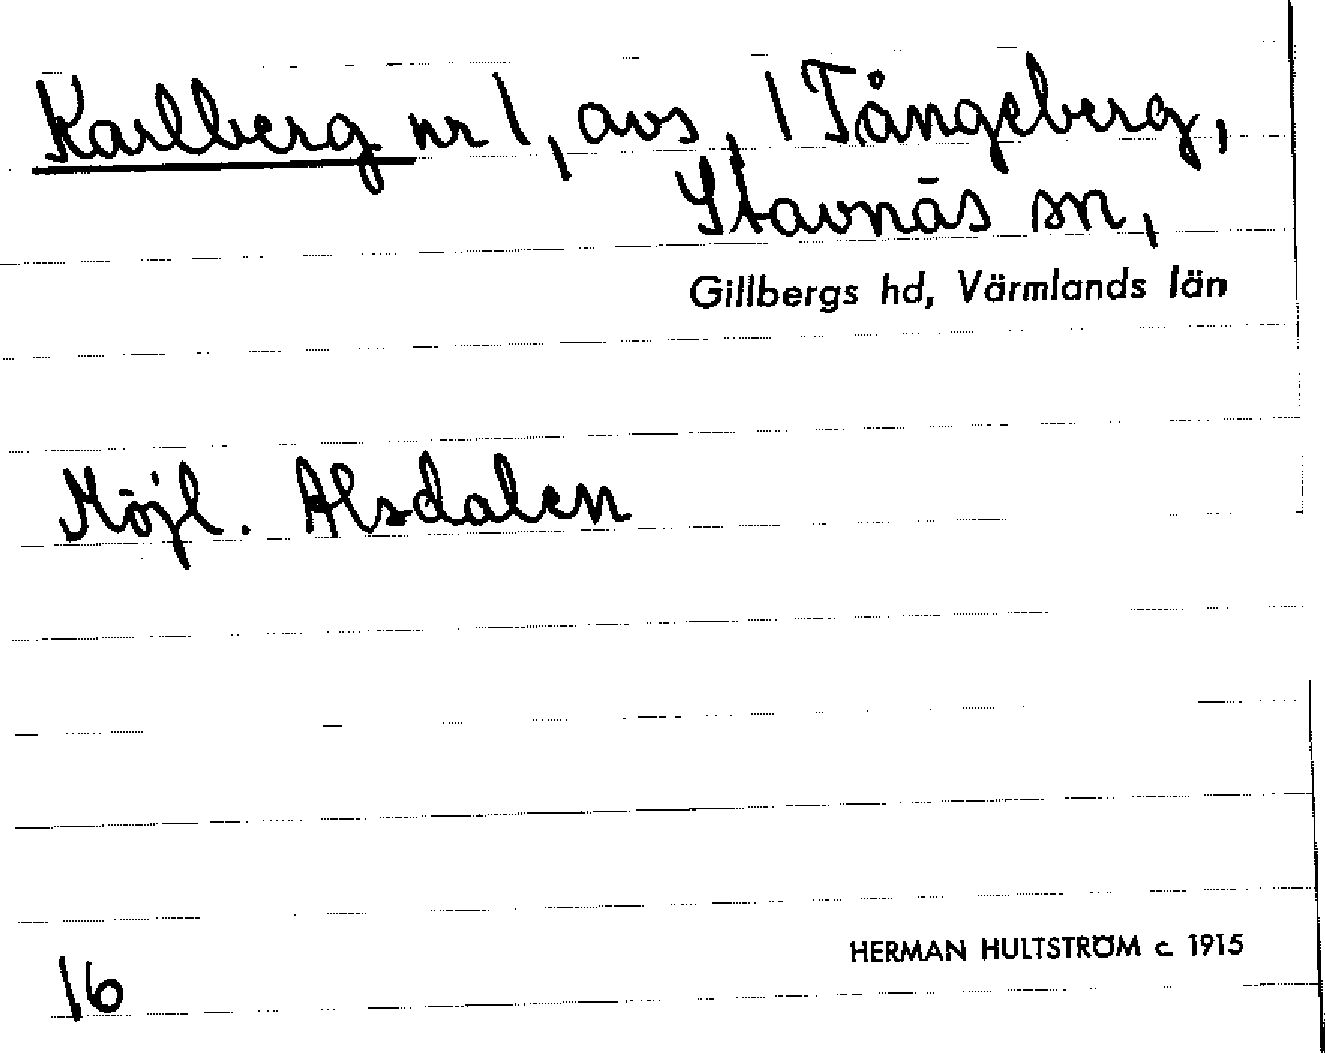 Karlberg nr 1, avs, 1 Tångeberg,
Stavnäs sn,
Gillbergs hd, Värmlands län
Möjl. Alsdalen
HERMAN HULTSTRÖM c. 1915
16